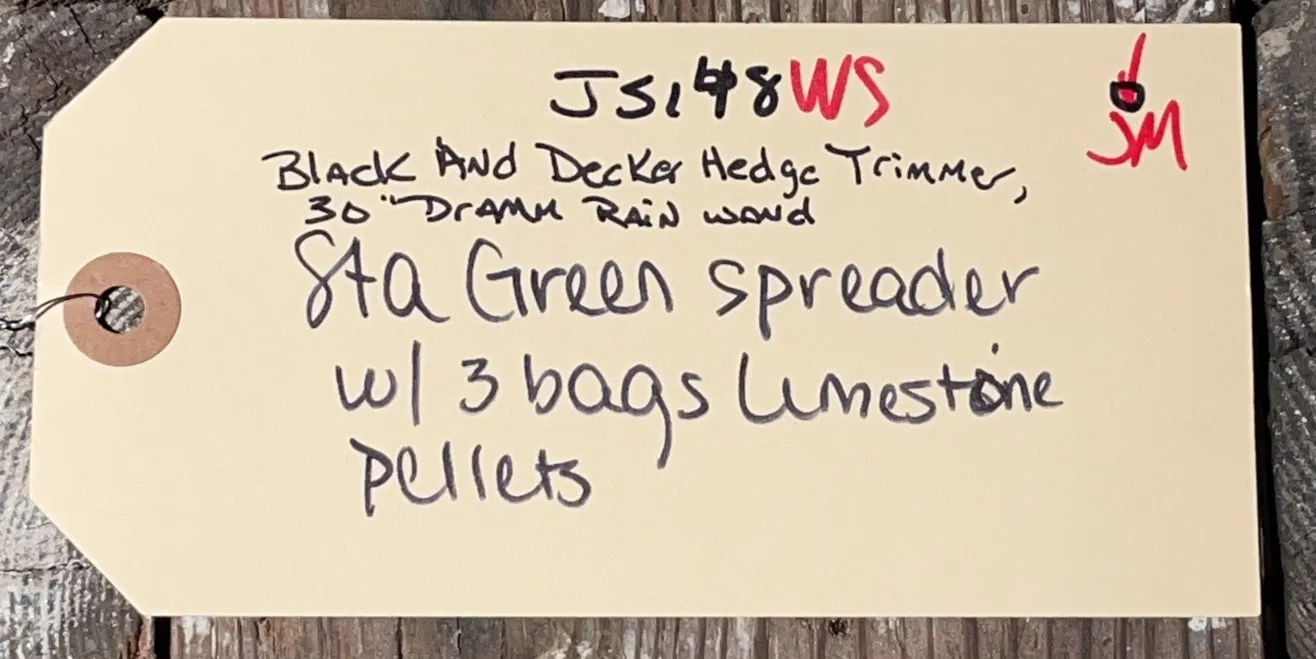 JS148WS
JM
Black And Decker Hedge Trimmer,
30" Dramm Rain wand
Sta Green spreader
w/ 3 bags Limestone
pellets